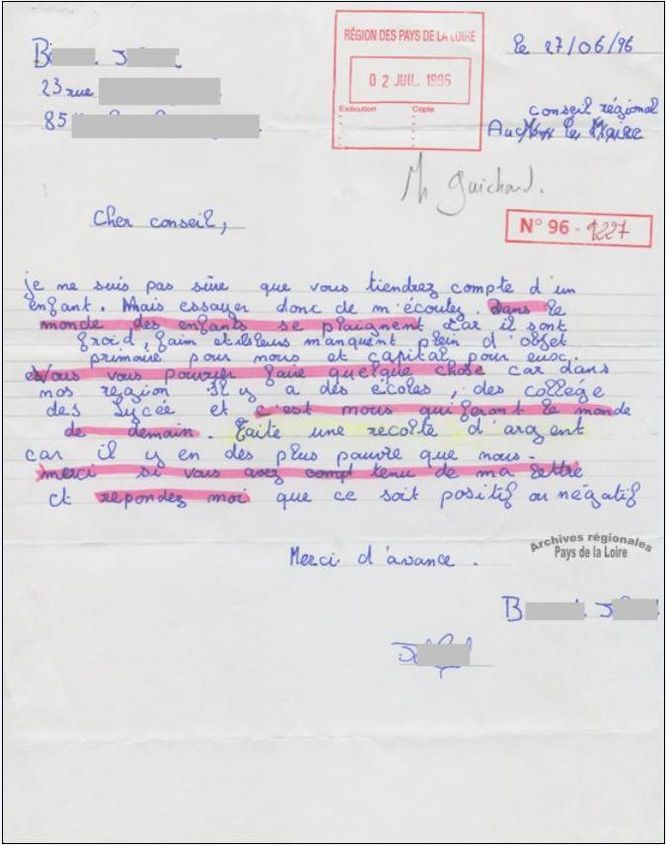 RÉGION DES PAYS DE LA LOIRE
02 JUIL. 1996
Exécution Copie
le 27/06/96
B J
23 rue
85
conseil régional
Au Maire
M Guichard.
N° 96 - 1227
Cher conseil,
je ne suis pas sûre que vous tiendrez compte d'un
enfant. Mais essayer donc de m'écoutez. Dans le
monde des enfants se plaignent car il sont
froid, faim et ailleurs manquent plein d'objet
primaire pour nous et capital pour eux.
Vous vous pourrier faire quelque chose car dans
nos region il y a des écoles, des collége
des Lycée et c'est nous qui feront le monde
de demain. Faite une recolte d'argent
car il y en des plus pauvre que nous.
merci si vous avez compt tenu de ma lettre
et repondez moi que ce soit positif ou négatif
Merci d'avance.
Archives régionales
Pays de la Loire
B J